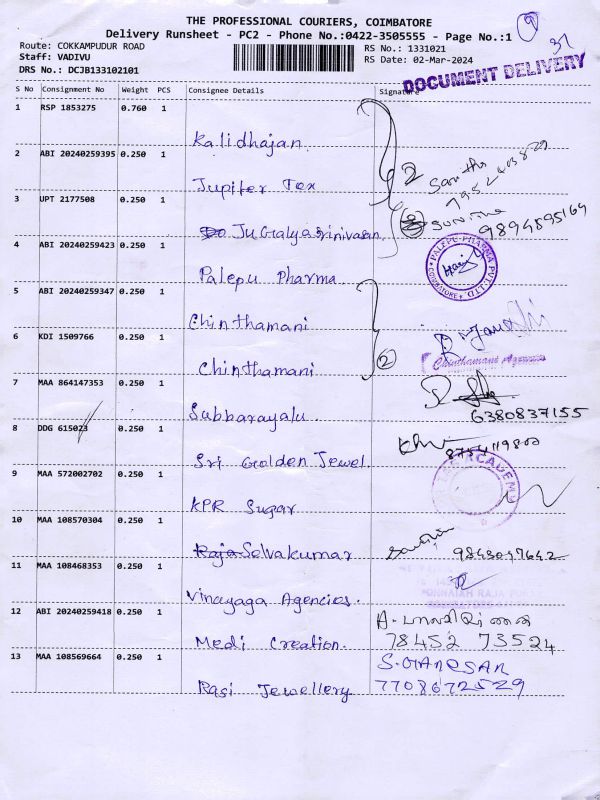 THE PROFESSIONAL COURIERS, COIMBATORE
Delivery Runsheet - PC2 - Phone No.:0422-3505555 - Page No.:1
Route: COKKAMPUDUR ROAD RS No.: 1331021
Staff: VADIVU RS Date: 02-Mar-2024
DRS No.: DCJB133102101
DOCUMENT DELIVERY
S No Consignment No Weight PCS Consignee Details Signature
1 RSP 1853275 0.760 1
Kalidhajan
2 ABI 20240259395 0.250 1
Jupiter Tex
3 UPT 2177508 0.250 1
Srinivasan 9894595169
4 ABI 20240259423 0.250 1
Palepu Pharma PALEPU PHARMA PVT. LTD. COIMBATORE
5 ABI 20240259347 0.250 1
Chinthamani
6 KDI 1509766 0.250 1
Chinthamani 2 Chinthamani Agencies
7 MAA 864147353 0.250 1
Subbarayalu 6380837155
8 DDG 615023 0.250 1
Sri Golden Jewel.
9 MAA 572002702 0.250 1
KPR Sugar ACADEMY
10 MAA 108570304 0.250 1
Selvakumar 9843047642
11 MAA 108468353 0.250 1
Vinayaga Agencies.
12 ABI 20240259418 0.250 1
Medi Creation. 78452 73524
13 MAA 108569664 0.250 1
Rasi Jewellery 7708672529